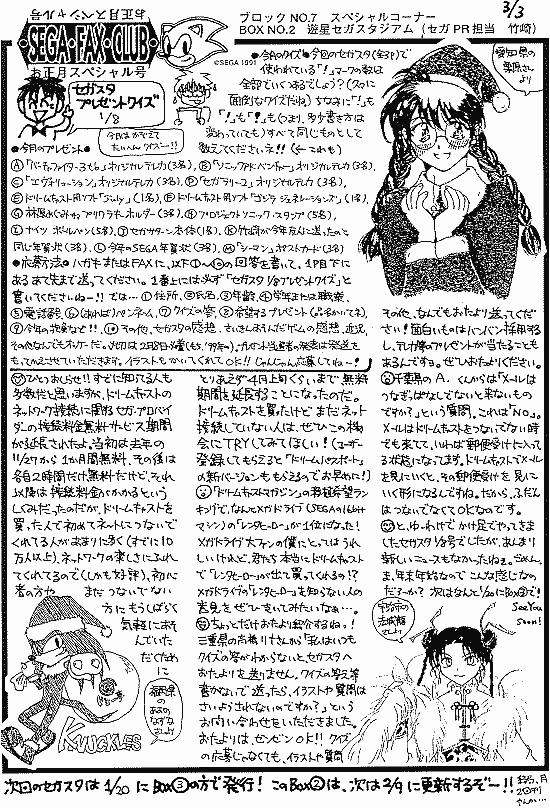 3/3
お正月スペシャル
SEGA・FAX・CLUB
お正月スペシャル号
ブロックNO.7 スペシャルコーナー
BOX NO.2 遊星セガスタジアム (セガPR担当 竹崎)
©SEGA 1991
セガスタ
プレゼントクイズ
1/8
今回はかぞえて
たいへんクイズー!!
●今月のクイズ● 今回のセガスタ(全3P)で
使われている"!"マークの数は
全部でいくつあるでしょう?(久々に
面倒なクイズだね) ちなみに"!"も
すべて同じものとして
教えてくださいネ!! (←これも)
●今月のプレゼント●
Ⓐ「バーチャファイター3tb」オリジナルテレカ(3名)、Ⓑ「ソニックアドベンチャー」オリジナルテレカ(3名)、
Ⓒ「エヴォリューション」オリジナルテレカ(3名)、Ⓓ「セガラリー2」オリジナルテレカ(3名)、
Ⓔドリームキャスト用ソフト「July」(1名)、Ⓕドリームキャスト用ソフト「ゴジラ・ジェネレーションズ」(1名)、
Ⓖ林原めぐみさんプリクラキーホルダー(3名)、Ⓗプロジェクトソニック・スタンプ(5名)、
Ⓘナイツ ボールペン(5名)、Ⓙセガサターン本体(1名)、Ⓚ竹崎が今年友人に送ったのと
同じ年賀状(3名)、Ⓛ今年のSEGA年賀状(3名)、Ⓜ「シーマン」ポストカード(3名)
●応募方法● ハガキまたはFAXに、以下①〜⑩の回答を書いて、1P目下に
あるあて先まで送ってください。1番上には必ず「セガスタ1/8プレゼントクイズ」と
書いてくださいねー!! では… ①住所、②氏名、③年齢、④学年または職業、
⑤電話番号、⑥(あれば)ペンネーム、⑦クイズの答、⑧希望するプレゼント
⑩その他、セガスタの感想、さいきんあそんだゲームの感想、近況、
その他なんでもオッケーだ。
もってかえさせていただきます。イラストもかいてくれてOK!! じゃんじゃん応募してねー!
愛知県の
ひとつおしらせ!! すでに知ってる人も
多数だと思いますが、ドリームキャストの
ネットワーク接続に関するセガ・プロバイ
ダーの接続料金無料サービス期間
が延長されたよ。当初は去年の
11/27から1か月間無料、その後は
各自2時間だけ無料だけど、それ
以降は接続料金がかかるという
しくみだったのだが、ドリームキャストを
買った人で初めてネットにつないで
くれてる人があまりに多く(すでに10
万人以上)、ネットワークの楽しさにふれ
てくれてるので(しかも好評)、初心
者の方や まだつないでない
方にもしばらく
気軽にあそ
んでいた
だくため
に
福岡県の
KNUCKLES
とりあえず4月上旬くらいまで無料
期間を延長することになったのだ。
ドリームキャストを買ったけどまだネット
接続していない人は、ぜひこの機
会にTRYしてみてほしい!(ユーザー
登録してもらえると「ドリームパスポート」
の新バージョンももらえるのでお早めに!)
「ドリームキャストマガジン」の移植希望ラン
キングで、なんとメガドライブ(SEGAの16bit
マシン)の「レンタヒーロー」が1位になった!
メガドライブ大ファンの僕にとってはうれ
しいけれど、君たち本当にドリームキャスト
で「レンタヒーロー」が出て買ってくれるの!?
メガドライブの「レンタヒーロー」を知らない人の
意見を、ぜひきいてみたいなぁ…。
ちょっとだけおたより紹介するねっ!
三重県の
クイズの答がわからないと、セガスタへ
おたよりを送りません。クイズの答え等
書かないで送ったら、イラストや質問は
さいようされないのですか?」という
お問い合わせをいただきました。
おたよりは、ゼンゼンOK!! クイズ
の応募じゃなくても、イラストや質問
その他、なんでもおたより送ってくだ
さい!面白いものはバンバン採用する
し、テレカ等のプレゼントが当たることも
あるんですヨ。ぜひおたよりください。
千葉県のA.くんからは「メールは
つなぎっぱなしでないと来ないもの
ですか?」という質問、これは「NO。」
メールはドリームキャストをつないでない時
でも来て、いわば郵便受けに入って
る状態になってます。ドリームキャストでメール
を見にいくと、その郵便受けを見に
いく形になるんですね。だから、ふだん
はつないでなくてOKなのです。
と、ゆーわけでかけ足でやってきま
したセガスタ1/8号でしたが、あんまり
新しいニュースもなかったねぇ。さぁん、
ま、年末年始なので こんな感じなの
だろーか? 次はなんと1/20にBox③で!
See You
Soon!
次回のセガスタは1/20にBox③の方で発行! このBox②は、次は2/9に更新するぞー!!